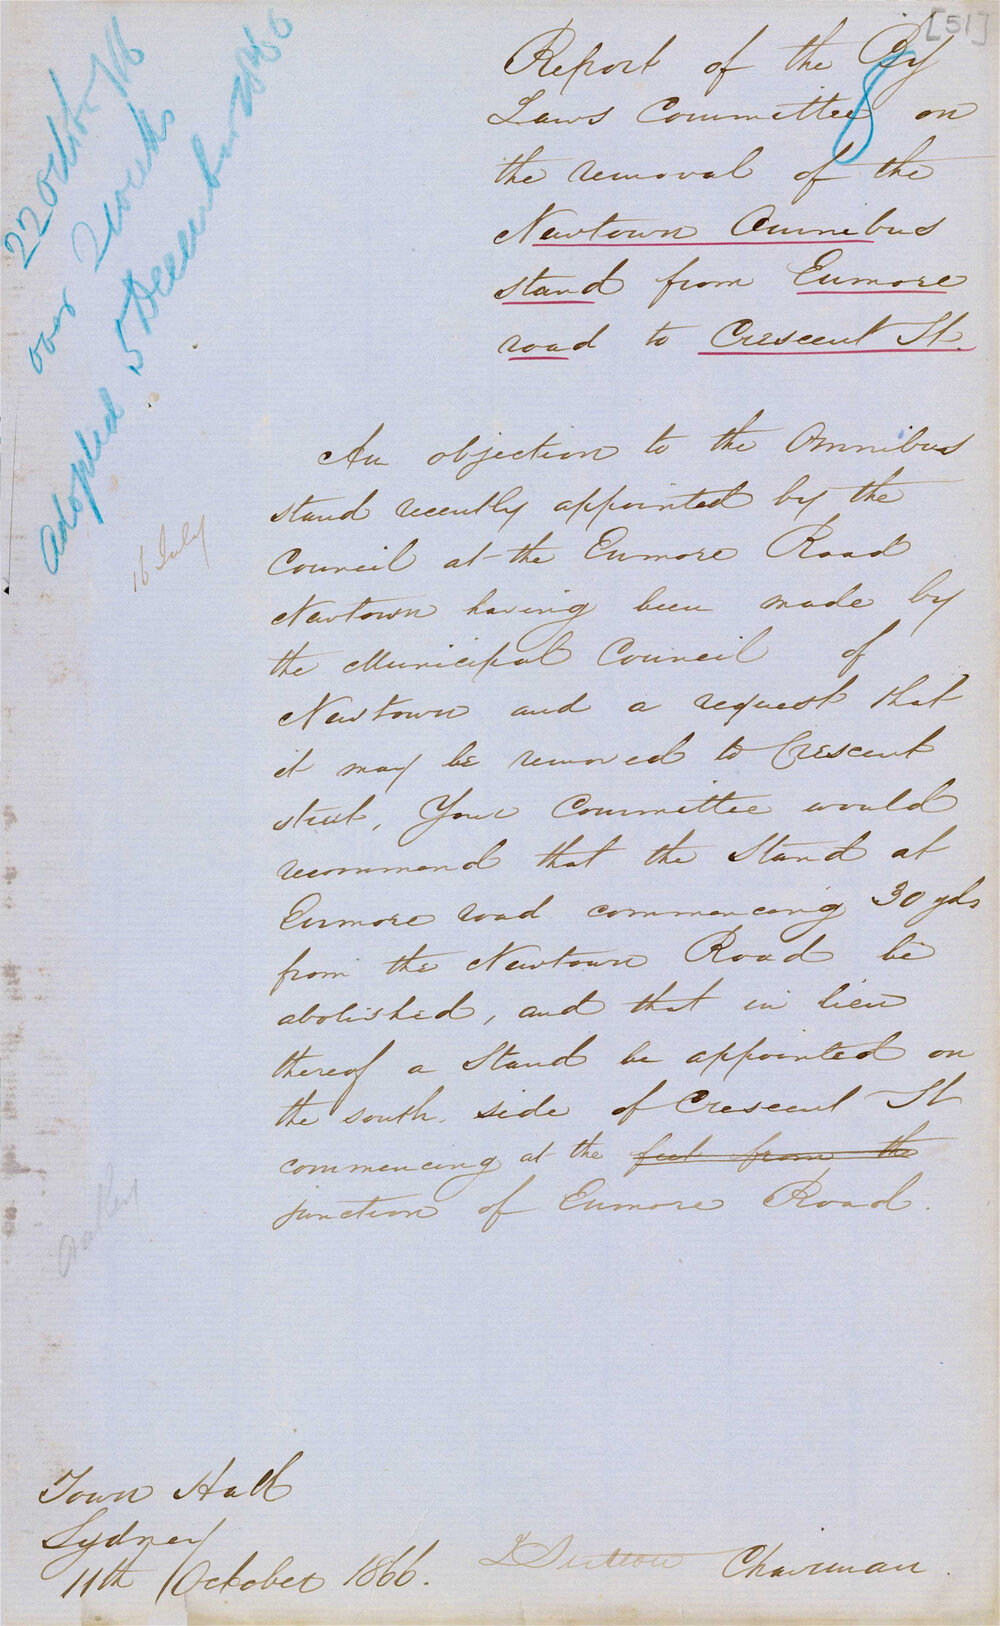 [51]
8
Report of the By
Laws Committee on
the removal of the
Newtown Omnibus
stand from Enmore
road to Crescent St.
22 October /66
over 2 weeks
Adopted 5 December 1866
16 July
An objection to the Omnibus
stand recently appointed by the
Council at the Enmore Road
Newtown having been made by
the Municipal Council of
Newtown and a request that
it may be removed to Crescent
street, Your Committee would
recommend that the Stand at
Enmore road commencing 30 yds
from the Newtown Road be
abolished, and that in lieu
thereof a Stand be appointed on
the south side of Crescent St
commencing at the feet from the
junction of Enmore Road.
Town Hall
Sydney
11th October 1866.
Sutton Chairman